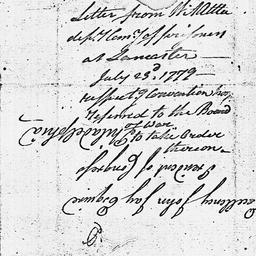 Letter from Wm Atlee
depy Comy of prisoners
at Lancaster
July 23d. 1779
respectg Convention
Referred to the Board
of War
to take Order
thereon
Philadelphia
President of Congress
Excellency John Jay Esquire